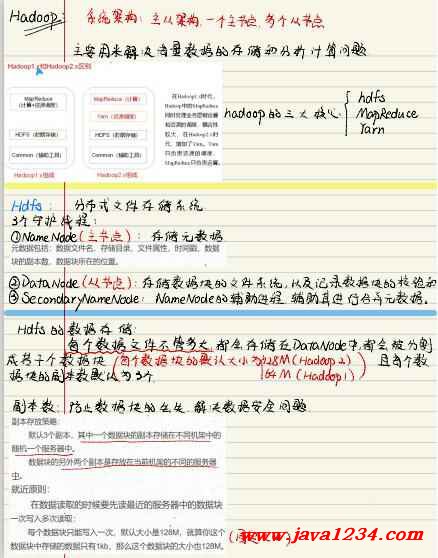 Hadoop: 系统架构: 主从架构, 一个主节点, 多个从节点
主要用来解决海量数据的存储和分析计算问题
Hadoop1.x和Hadoop2.x区别
MapReduce
(计算+资源调度)
HDFS (数据存储)
Common (辅助工具)
Hadoop1.x组成
MapReduce (计算)
Yarn (资源调度)
HDFS (数据存储)
Common (辅助工具)
Hadoop2.x组成
在Hadoop1.x时代,
Hadoop中的MapReduce
同时处理业务逻辑运算
和资源的调度, 耦合性
较大, 在Hadoop2.x时
代, 增加了Yarn。Yarn
只负责资源的调度,
MapReduce只负责运算。
hadoop的三大核心
hdfs
MapReduce
Yarn
Hdfs: 分布式文件存储系统
3个守护线程:
①NameNode(主节点): 存储元数据
元数据包括: 数据文件名, 存储目录, 文件属性, 时间戳, 数据
块的副本数, 数据块所在的位置。
②DataNode(从节点): 存储数据块的文件系统, 以及记录数据块的校验和
③SecondaryNameNode: NameNode的辅助进程 辅助其进行合并元数据.
Hdfs的数据存储:
每个数据文件不管多大, 都会存储在DataNode中, 都会被分割
成若干个数据块 (每个数据块的默认大小为128M(Hadoop2)
64M(Hadoop1)) 且每个数
据块的副本数默认为3个.
副本数: 防止数据块的丢失, 解决数据安全问题
副本存放策略:
默认3个副本, 其中一个数据块的副本存储在不同机架中的
随机一个服务器中。
数据块的另外两个副本是存放在当前机架的不同的服务器
中。
就近原则:
在数据读取的时候要先读最近的服务器中的数据块
一次写入多次读取:
每个数据块只能写入一次, 默认大小是128M, 就算你这个
数据块中存储的数据只有1kb, 那么这个数据块的大小也128M。
www.java1234.com